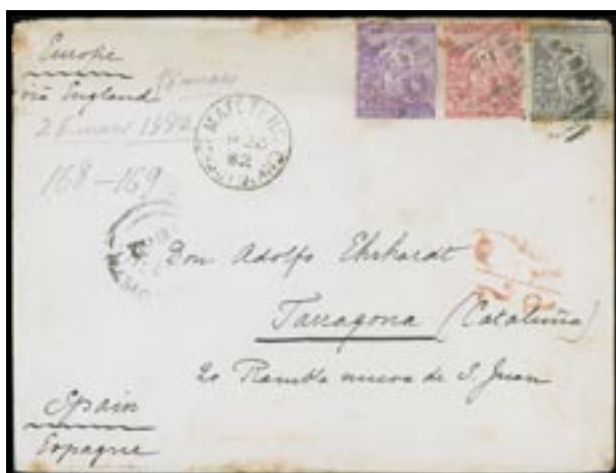 Europe
via England
18 mars
25 mars 1882
168-169
82
Don Adolfo Ehrhardt
Tarragona (Cataluña)
20 Rambla nueva de S. Juan
Spain
Espagne